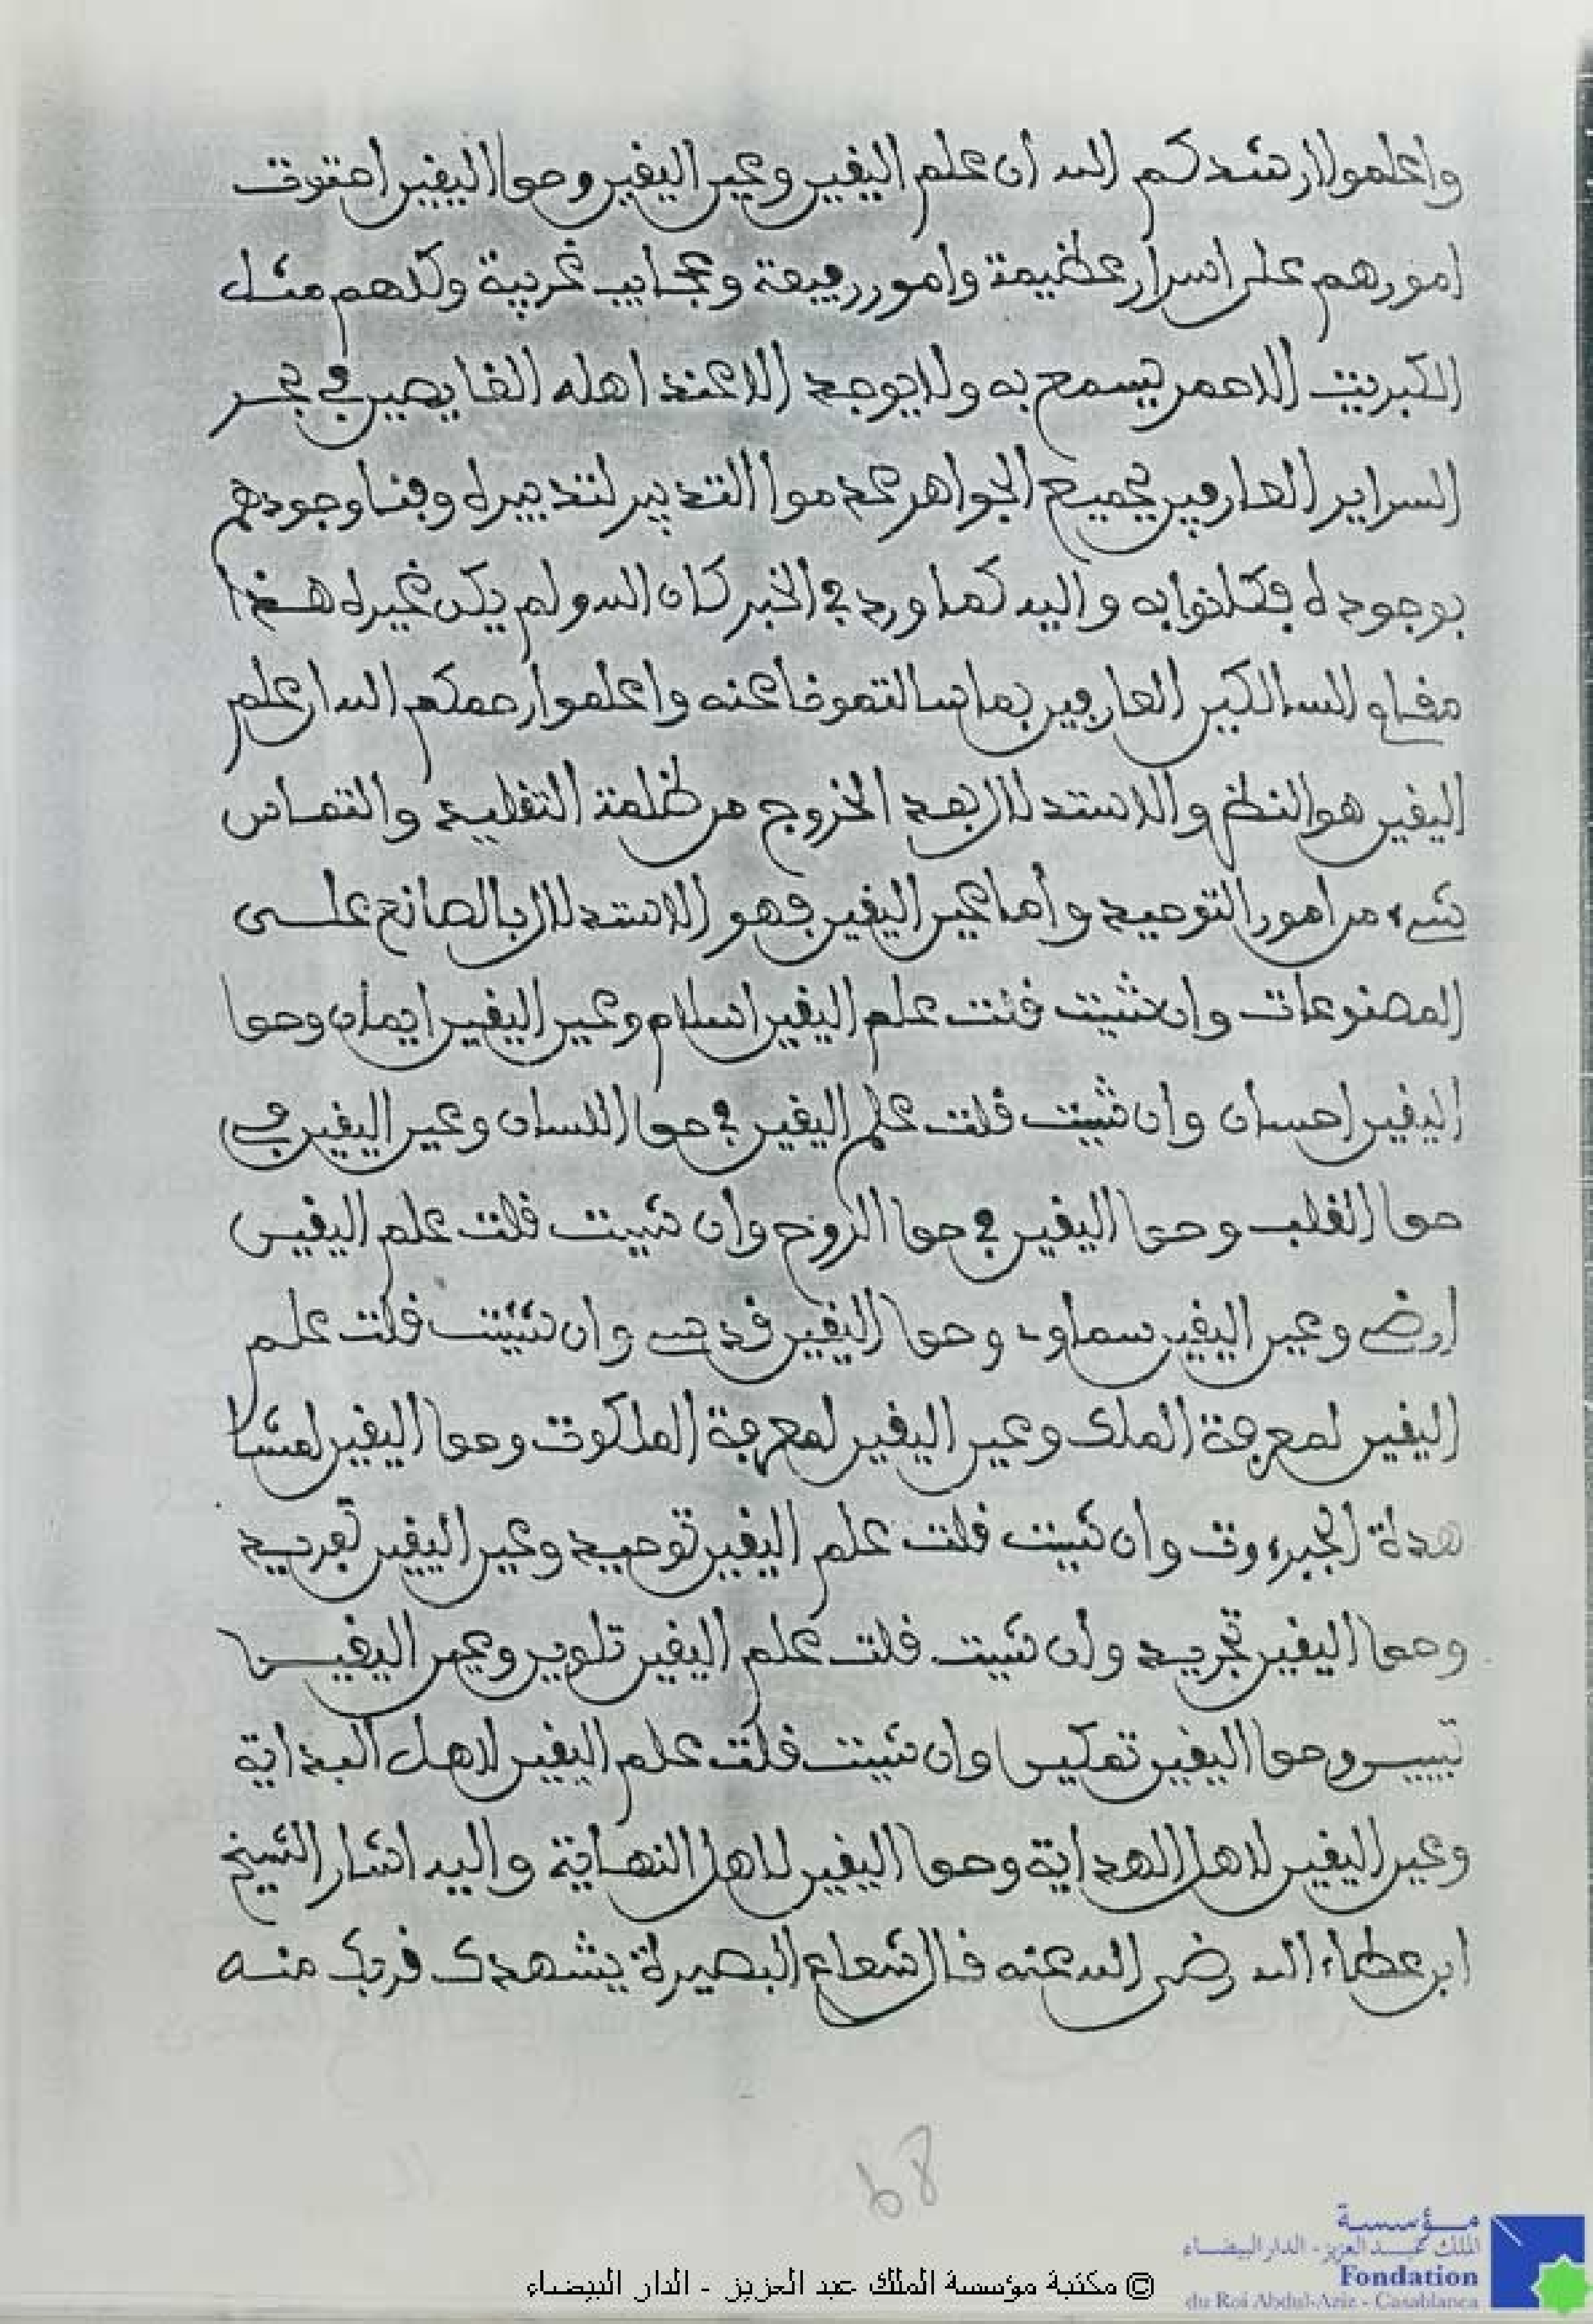 واعلموا ارشدكم الله ان علم اليقين وعين اليقين وحق اليقين احتوت
امورهم على اسرار عظيمة وامور رفيعة وعجايب غريبة وكلهم مثل
الكبريت الاحمر يسمع به ولا يوجد الا عند اهله الغايصين في بحر
السراير العارفين بجميع الجواهر عدموا التدبير لتدبيره وفنا وجودهم
بوجوده فكانوا به واليه كما ورد في الخبر كان الله ولم يكن غيره هذا
مقام السالكين العارفين بما سالتمونا عنه واعلموا رحمكم الله ان علم
اليقين هو النظر والاستدلال بعد الخروج من ظلمة التقليد والتماس
شيء من امور التوحيد واما عين اليقين فهو الاستدلال بالصانع على
المصنوعات وان شئت قلت علم اليقين اسلام وعين اليقين ايمان وحق
اليقين احسان وان شيت قلت علم اليقين في حق اللسان وعين اليقين في
حق القلب وحق اليقين في حق الروح وان شيت قلت علم اليقين
ارضي وعين اليقين سماوي وحق اليقين قدسي وان شئت قلت علم
اليقين لمعرفة الملك وعين اليقين لمعرفة الملكوت وحق اليقين لمشا
هدة الجبروت وان شيت قلت علم اليقين توحيد وعين اليقين تفريد
وحق اليقين تجريد وان شيت قلت علم اليقين تلوين وعين اليقين
تبيين وحق اليقين تمكين وان شيت قلت علم اليقين لاهل البداية
وعين اليقين لاهل الهداية وحق اليقين لاهل النهاية واليه اشار الشيخ
ابن عطاء الله رضي الله عنه قال شعاع البصيرة يشهدك قربك منه
68
© مكتبة مؤسسة الملك عبد العزيز - الدار البيضاء
مؤسسة
الملك عبد العزيز - الدار البيضاء
Fondation
du Roi Abdul-Aziz - Casablanca